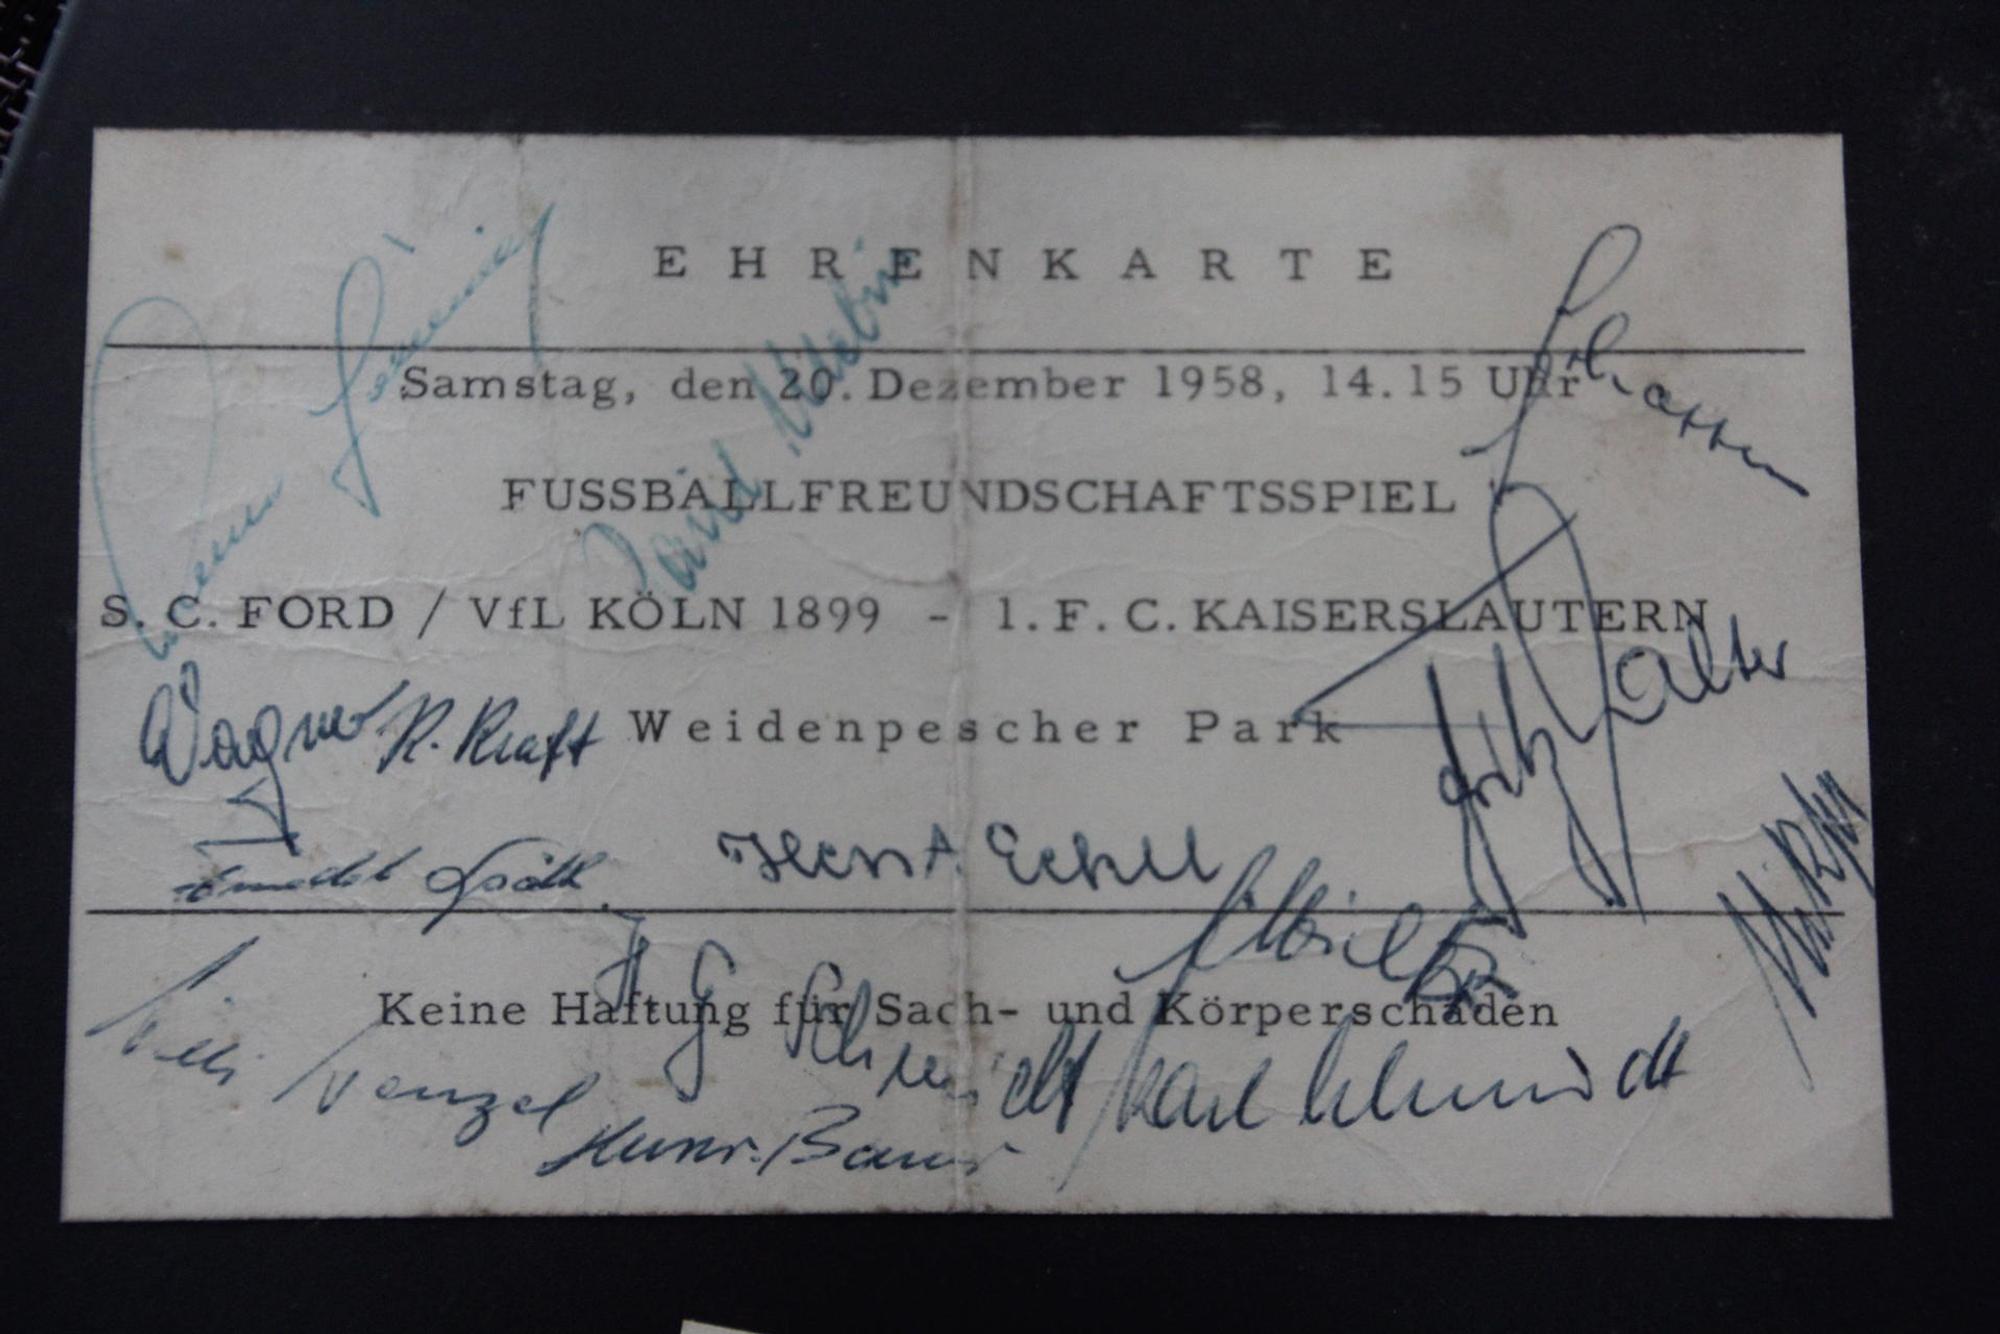 EHRENKARTE
Samstag, den 20. Dezember 1958, 14.15 Uhr
FUSSBALLFREUNDSCHAFTSSPIEL
S. C. FORD / VfL KÖLN 1899 - 1. F. C. KAISERSLAUTERN
Fritz Walter
Wagner R. Kraft Weidenpescher Park
Horst Eckel
Keine Haftung für Sach- und Körperschäden
Willi Wenzel
Schmidt Karl Schmidt
Bauer